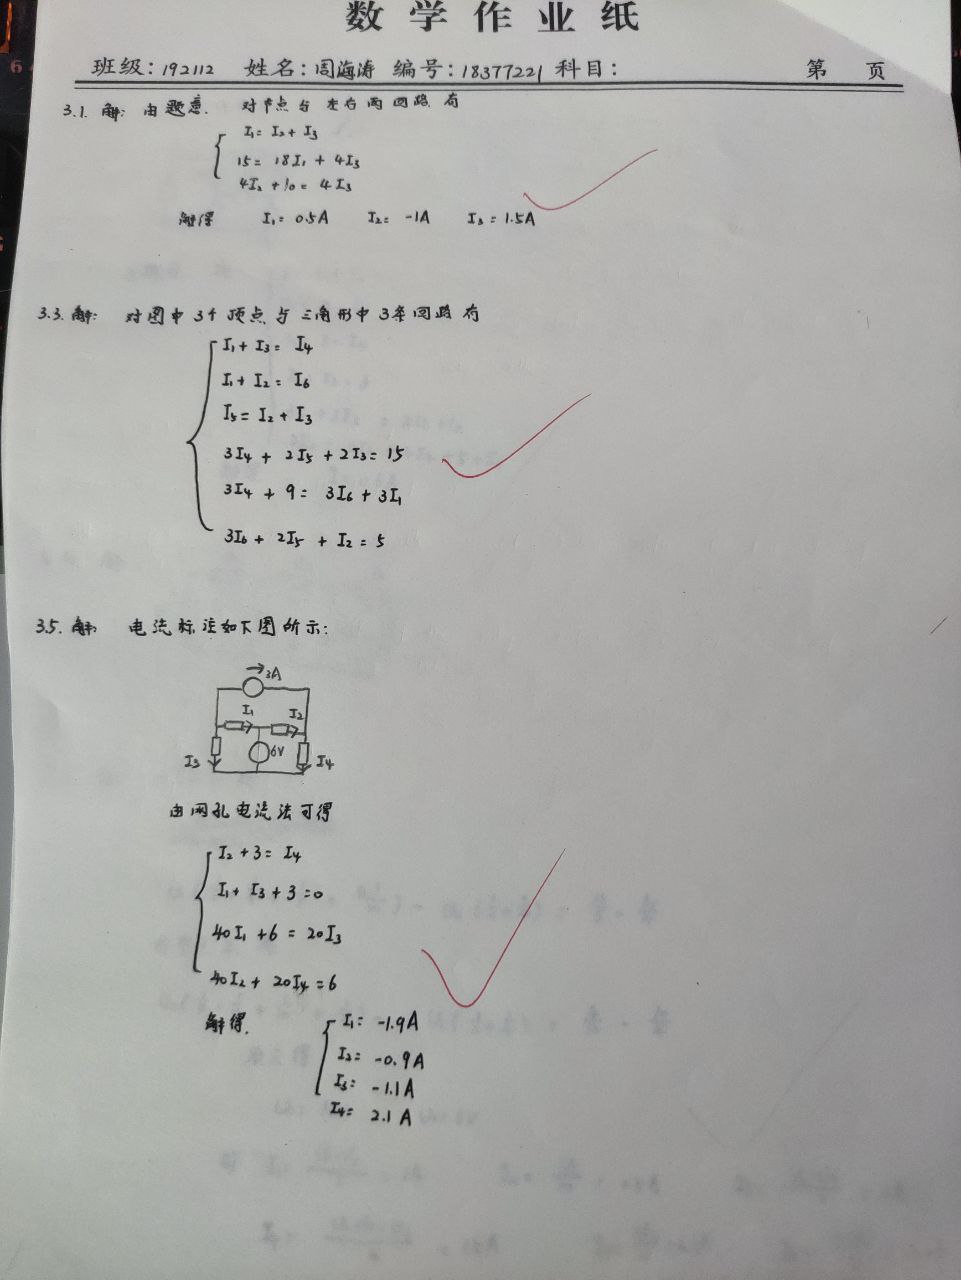 数学作业纸
班级: 192112 姓名: 周海涛 编号: 18377221 科目: 第 页
3.1. 解: 由题意. 对节点与左右两回路有
I₁= I₂ + I₃
15= 18I₁ + 4I₃
4I₂ +10= 4I₃
解得 I₁= 0.5A I₂= -1A I₃ = 1.5A
3.3. 解: 对图中3个顶点与三角形中3条回路有
I₁ + I₃ = I₄
I₁ + I₂ = I₆
I₅ = I₂ + I₃
3I₄ + 2I₅ + 2I₃= 15
3I₄ + 9 = 3I₆ + 3I₁
3I₆ + 2I₅ + I₂ = 5
3.5. 解: 电流标注如下图所示:
3A
I₁ I₂
I₃ 6V I₄
由网孔电流法可得
I₂ + 3 = I₄
I₁ + I₃ + 3 =0
40I₁ +6 = 20I₃
40I₂ + 20I₄ =6
解得. I₁= -1.9A
I₂= -0.9A
I₃= -1.1A
I₄= 2.1A